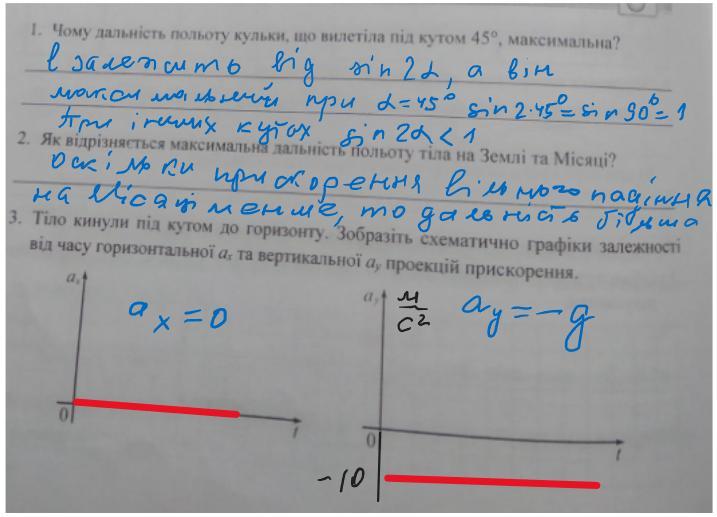 1. Чому дальність польоту кульки, що вилетіла під кутом 45°, максимальна?
l залежить від sin 2α, а він
максимальний при α=45° sin 2·45°=sin 90°=1
При інших кутах sin 2α < 1
2. Як відрізняється максимальна дальність польоту тіла на Землі та Місяці?
Оскільки прискорення вільного падіння
на Місяці менше, то дальність більша
3. Тіло кинули під кутом до горизонту. Зобразіть схематично графіки залежності
від часу горизонтальної aₓ та вертикальної aᵧ проекцій прискорення.
aₓ
aₓ = 0
0
t
aᵧ м/с²
aᵧ = -g
0
t
-10